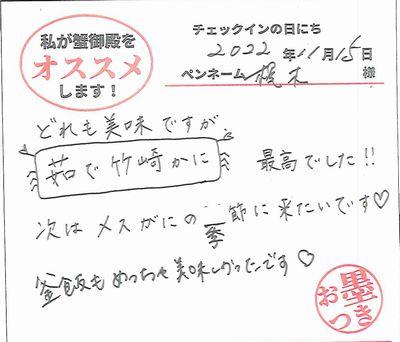 私が蟹御殿を
オススメ
します！
チェックインの日にち
2022年11月15日
ペンネーム 梶木 様
どれも美味ですが
茹で竹崎かに 最高でした!!
次はメスがにの季節に来たいです♡
釜飯もめっちゃ美味しかったです♡
お墨つき